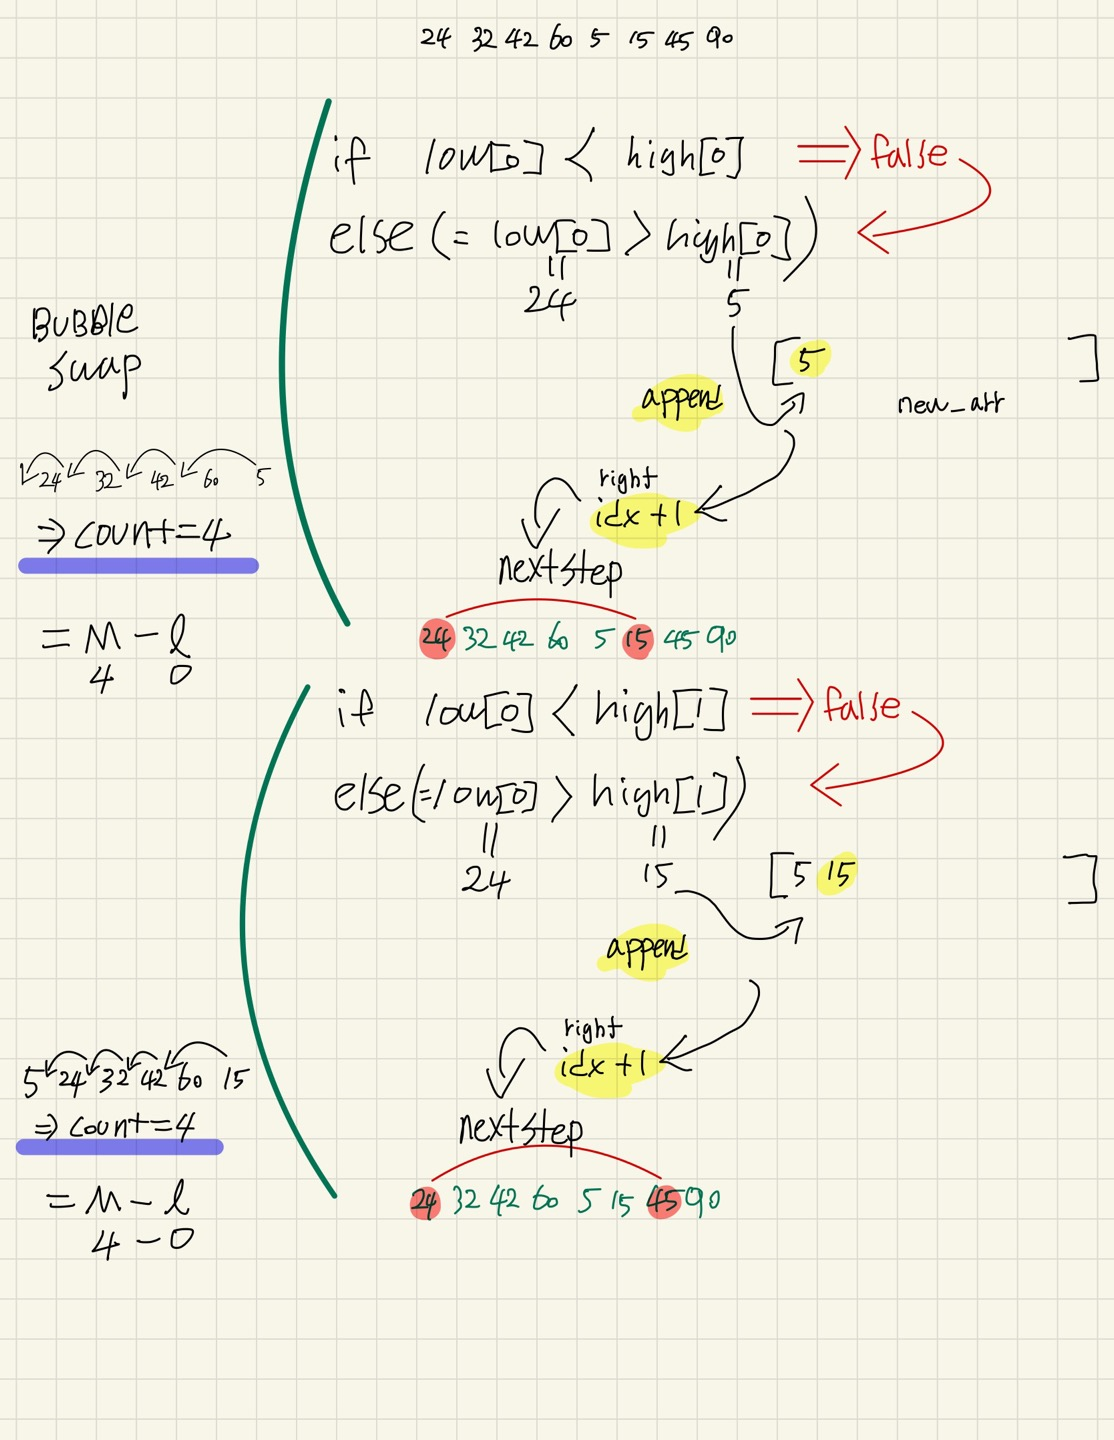 24 32 42 60 5 15 45 90
if low[0] < high[0] ⇒ false
else (= low[0] > high[0])
24 5
BUBBLE
swap
[5 ]
append
new_arr
24 32 42 60 5
right
idx +1
⇒ count=4
next step
= M - l
4 0
24 32 42 60 5 15 45 90
if low[0] < high[1] ⇒ false
else (= low[0] > high[1])
24 15
[5 15 ]
append
right
idx +1
5 24 32 42 60 15
⇒ count=4
next step
= M - l
4 - 0
24 32 42 60 5 15 45 90